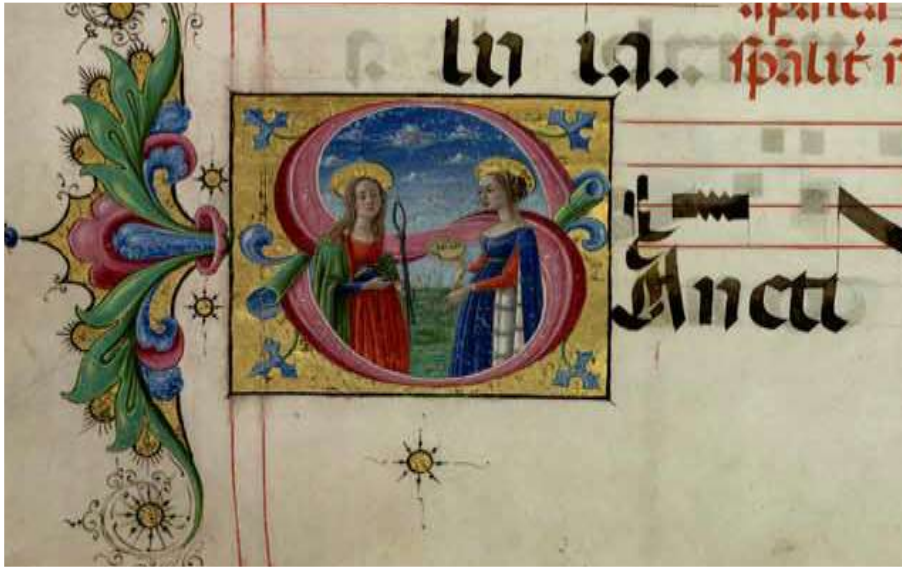 lu ia. ſp̄alit᷑
SAncti